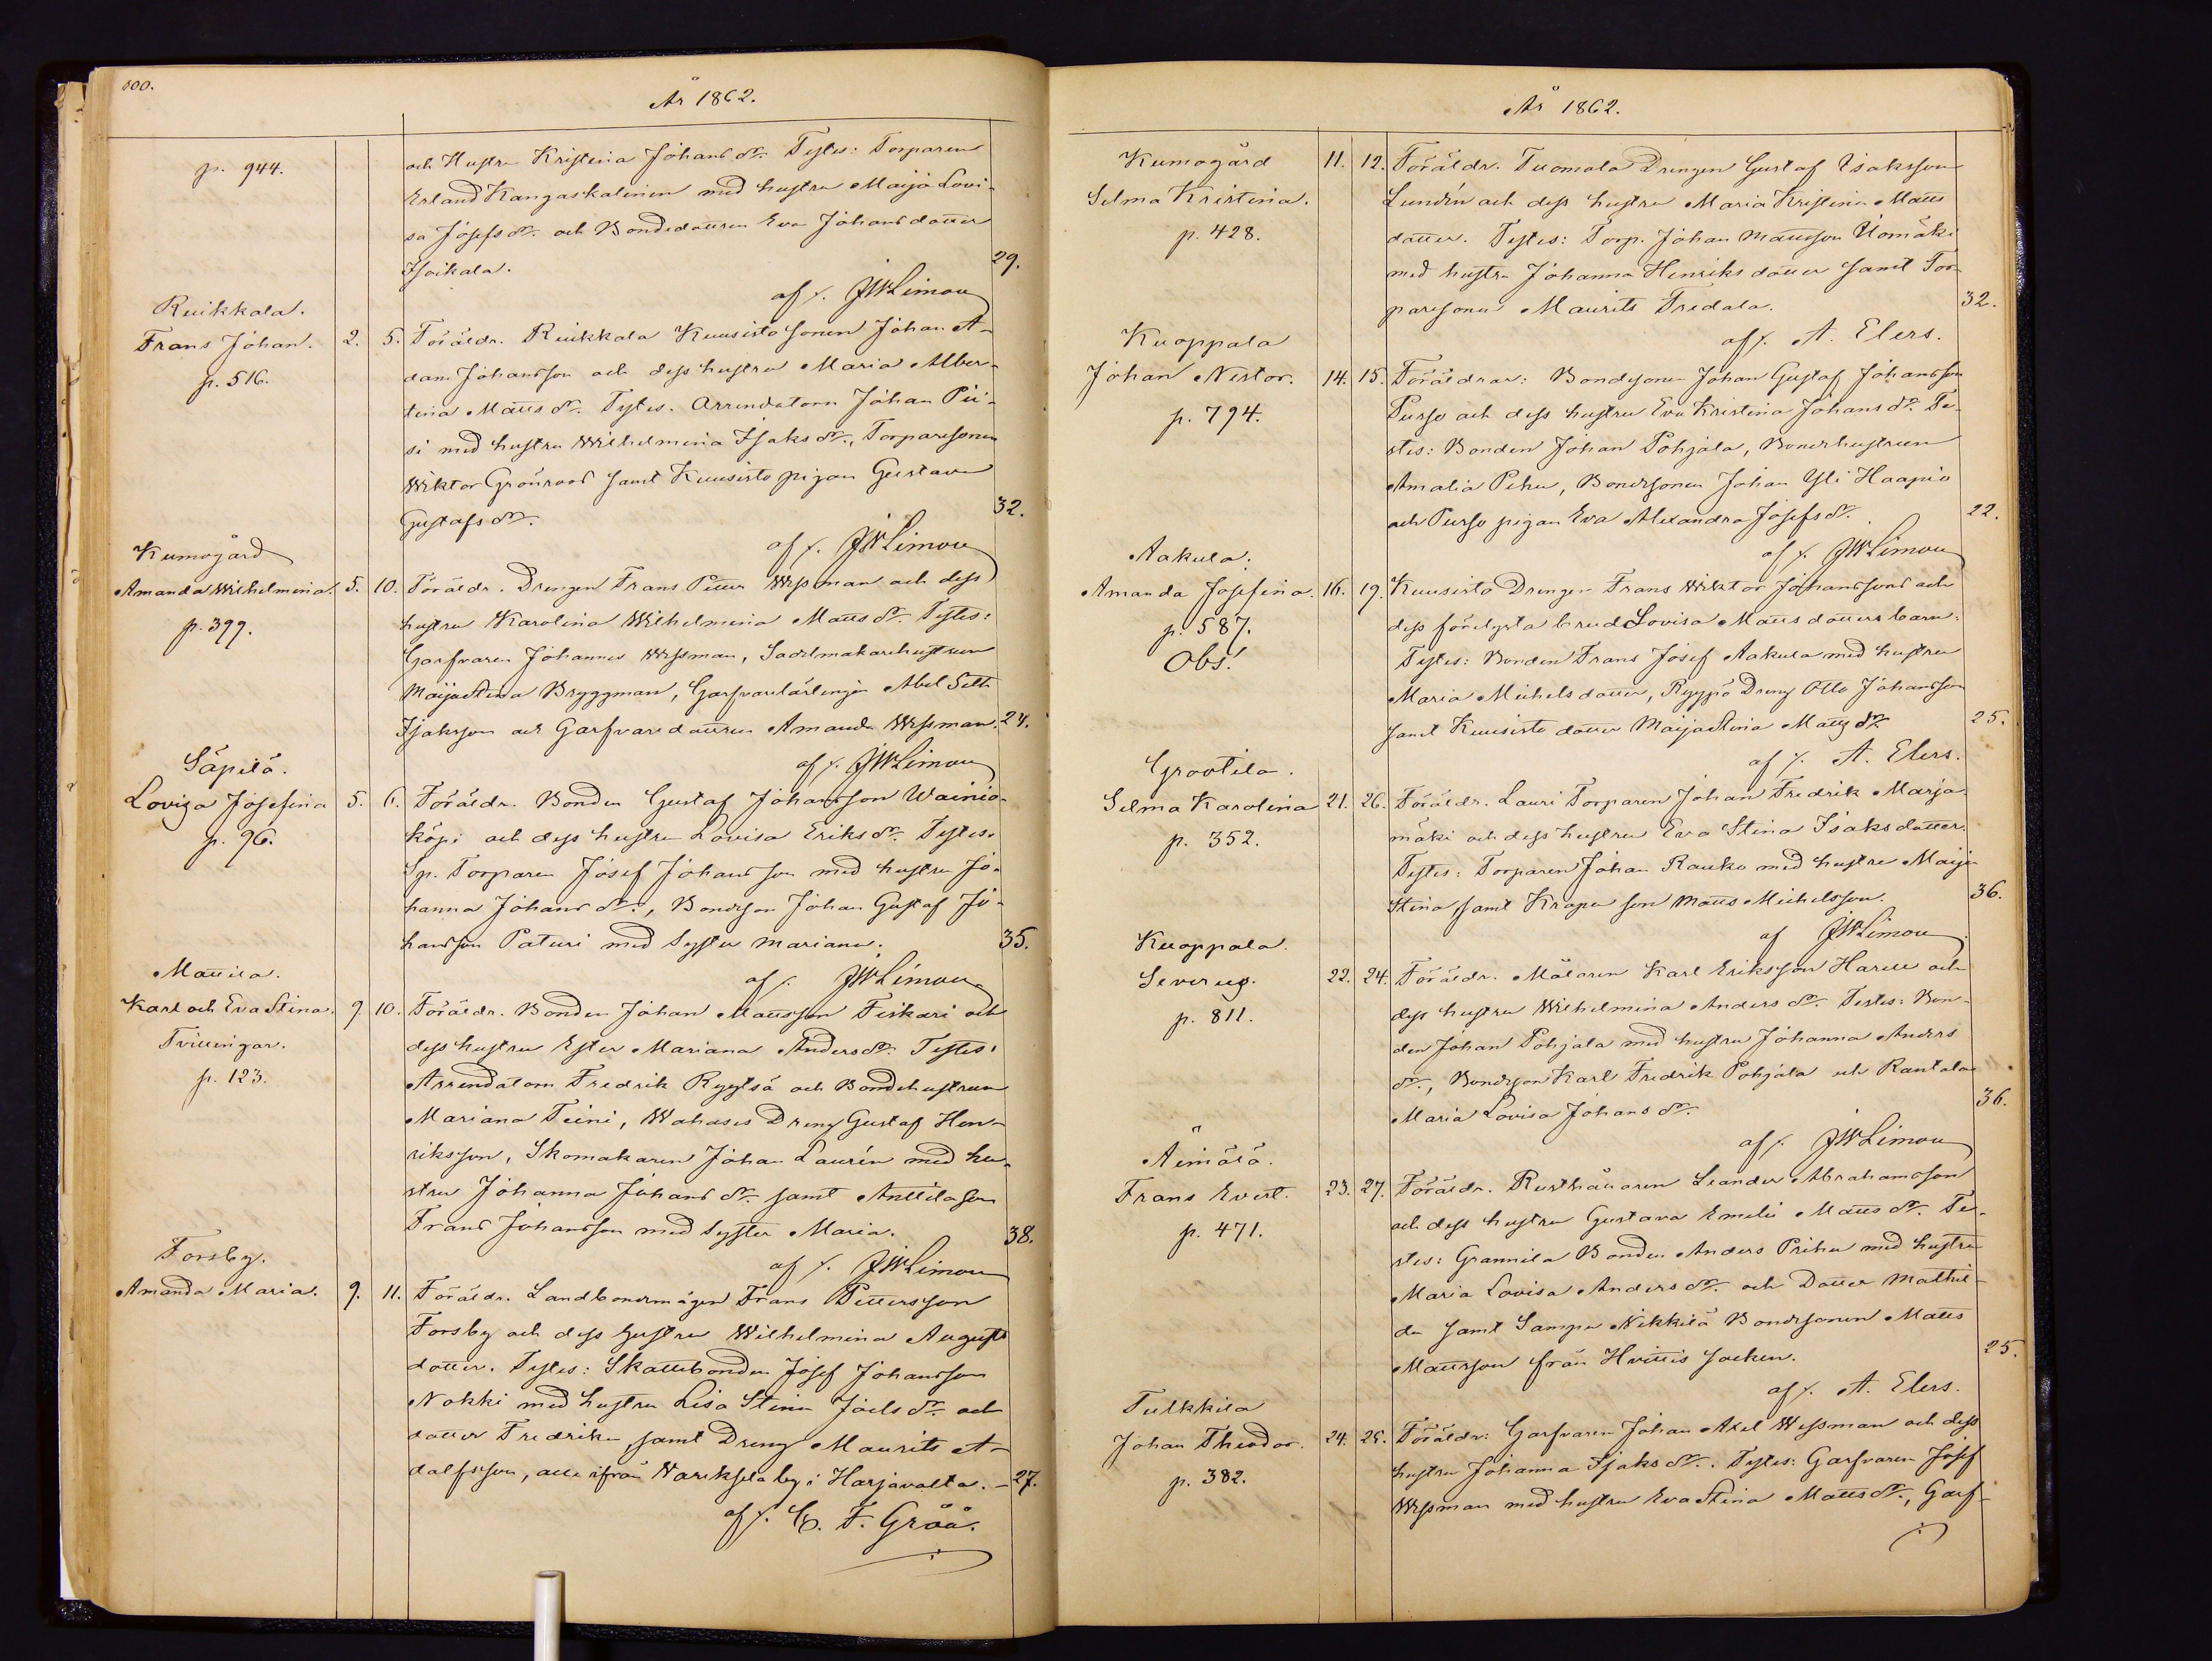 500.
År 1862.
p. 944.
och Hustru Kristina Johans dr. Testes: Torparen
Erland Kangaskalinen med hustru Maija Lovi-
sa Josefs dr. och Bondedottren Eva Johansdotter
Isoikala. 29.
af /. JWLimon
Ruikkala.
Frans Johan. 2. 5. Föräldr. Ruikkala Kuusisto sonen Johan A-
p. 516.
dam Johansson och dess hustru Maria Alber-
tina Matts dr. Testes. Arrendatorn Johan Pii-
si med hustru Wilhelmina Isaks dr., Torparesonen
Wiktor Grönroos samt Kuusisto pigan Gustava
Gustafs dr. 32.
af /. JWLimon
Kumogård
Amanda Wilhelmina. 5. 10. Föräldr. Drengen Frans Petter Wessman och dess
p. 399.
hustru Karolina Wilhelmina Matts dr. Testes:
Garfvaren Johannes Wessman, Sadelmakarehustrun
Maija Stina Bryggman, Garfvarelärlingen Abel Seth
Isaksson och Garfvaredottren Amanda Wessman. 24.
af /. JWLimon
Säpilä.
Loviza Josefina 5. 6. Föräldr. Bonden Gustaf Johansson Wainio-
p. 96.
köpi och dess hustru Lovisa Eriks dr. Testes.
Sp. Torparen Josef Johansson med hustru Jo-
hanna Johans dr., Bondeson Johan Gustaf Jo-
hansson Paturi med syster Mariana. 35.
af /. JWLimon
Mattila.
Karl och Eva Stina. 9. 10. Föräldr. Bonden Johan Mattsson Fiskari och
Tvillingar.
p. 123.
dess hustru Ester Mariana Anders dr. Testes:
Arrendatorn Fredrik Ryytsä och Bondehustrun
Mariana Teini, Wahases Dreng Gustaf Hen-
riksson, Skomakaren Johan Laurén med hu-
stru Johanna Johans dr. samt Anttila son
Frans Johansson med syster Maria. 38.
af /. JWLimon
Forsby.
Amanda Maria. 9. 11. Föräldr. Landbondemågen Frans Pettersson
Forsby och dess hustru Wilhelmina Augusts
dotter. Testes: Skattebonden Josef Johansson
Nokki med hustru Lisa Stina Joels dr. och
dotter Fredrika, samt Dreng Maurits A-
dolfsson, alle ifrån Warekselä by i Harjavalta. 27.
af /. C. F. Gråå.
År 1862.
Kumogård 11. 12. Föräldr. Tuomola Drengen Gustaf Isaksson
Selma Kristina.
p. 428.
Lundén och dess hustru Maria Kristina Matts
dotter. Testes: Torp. Johan Mattsson Uomäki
med hustru Johanna Henriks dotter samt Tor-
paresonen Maurits Fredala. 32.
af /. A. Elers.
Kuoppala
Johan Nestor. 14. 15. Föräldrar: Bondsonen Johan Gustaf Johansson
p. 794.
Purso och dess hustru Eva Kristina Johans dr. Te-
stes: Bonden Johan Pohjala, Bondehustrun
Amalia Pehu, Bondesonen Johan Yli Haapio
och Purso pigan Eva Alexandra Josefs dr. 22.
af /. JWLimon
Aakula.
Amanda Josefina. 16. 19. Kuusisto Drengen Frans Wiktor Johanssons och
p. 587.
Obs!
dess förelysta brud Lovisa Matts dotters barn.
Testes: Bonden Frans Josef Aakula med hustru
Maria Michels dotter, Ryyppö Dreng Otto Johansson
samt Kuusisto dotter Maija Stina Matts dr. 25.
af /. A. Elers.
Grootila.
Selma Karolina 21. 26. Föräldr. Lauri Torparen Johan Fredrik Marja-
p. 352.
mäki och dess hustru Eva Stina Isaks dotter.
Testes: Torparen Johan Rauko med hustru Maija
Stina, samt Krapu son Matts Michelsson. 36.
af JWLimon
Kuoppala.
Severus. 22. 24. Föräldr. Målaren Karl Eriksson Harell och
p. 811.
dess hustru Wilhelmina Anders dr. Testes: Bon-
den Johan Pohjala med hustru Johanna Anders
dr., Bondeson Karl Fredrik Pohjala och Rantala
Maria Lovisa Johans dr. 36.
af /. JWLimon
Äimälä.
Frans Evert. 23. 27. Föräldr. Rusthållaren Leander Abrahamsson
p. 471.
och dess hustru Gustava Emelie Matts dr. Te-
stes: Grannila Bonden Anders Prihu med hustru
Maria Lovisa Anders dr. och Dotter Mathil-
da samt Sampu Nikkilä Bondesonen Matts
Mattsson från Hvittis socken. 25.
af /. A. Elers.
Tulkkila
Johan Theodor. 24. 25. Föräldr: Garfvaren Johan Axel Wessman och dess
p. 382.
hustru Johanna Isaks dr. Testes: Garfvaren Josef
Wessman med hustru Eva Stina Matts dr., Garf-